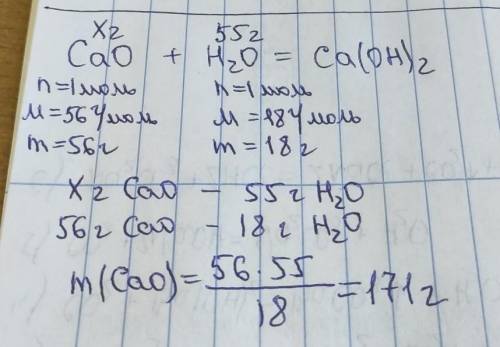 x г 55 г
CaO + H₂O = Ca(OH)₂
n = 1 моль n = 1 моль
M = 56 г/моль M = 18 г/моль
m = 56 г m = 18 г
x г CaO – 55 г H₂O
56 г CaO – 18 г H₂O
m(CaO) = 56·55 / 18 = 171 г